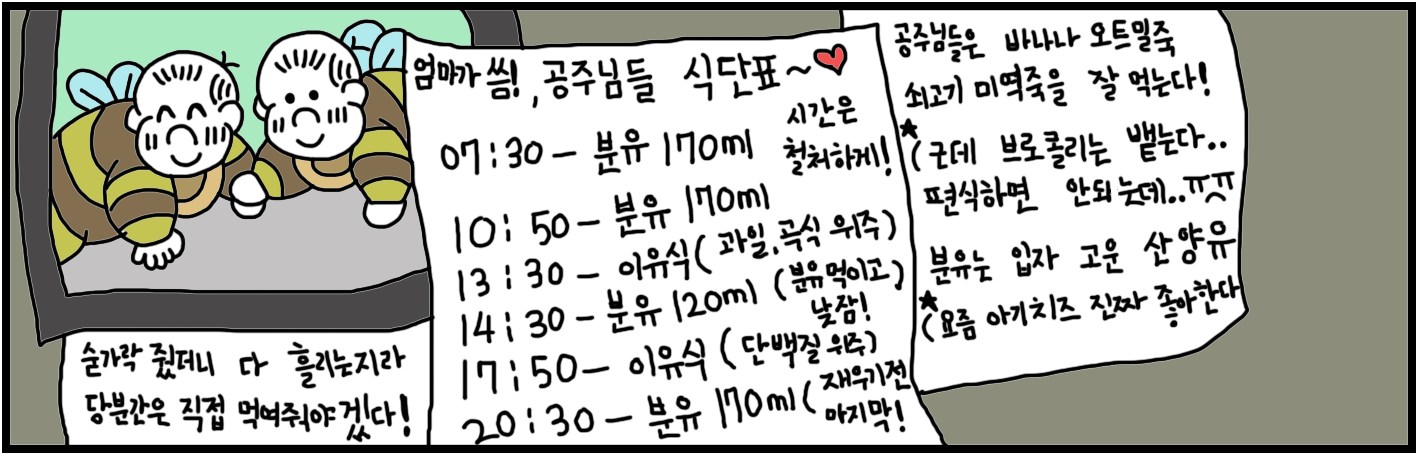 엄마가 씀!, 공주님들 식단표~
시간은
철처하게!
07:30 - 분유 170ml
10:50 - 분유 170ml
13:30 - 이유식(과일,곡식 위주)
14:30 - 분유 120ml (분유먹이고)
낮잠!
17:50 - 이유식 (단백질 위주)
20:30 - 분유 170ml (재우기전
마지막!
공주님들은 바나나 오트밀죽
쇠고기 미역죽을 잘 먹는다!
★
(근데 브로콜리는 뱉는다..
편식하면 안되는데..ㅠㅠ
분유는 입자 고운 산양유
★
(요즘 아기치즈 진짜 좋아한다
숟가락 줬더니 다 흘리는지라
당분간은 직접 먹여줘야겠다!